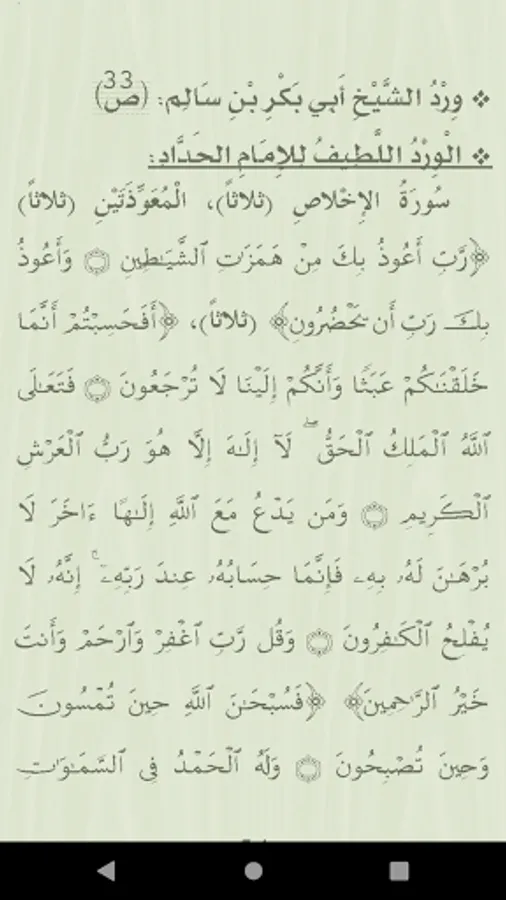 ❖ وِرْدُ الشَّيْخِ أَبي بَكْرِ بْنِ سَالِم: (ص33)
❖ الْوِرْدُ اللَّطِيفُ لِلإِمَامِ الحَدَّادِ:
سُورَةُ الإِخْلاصِ (ثلاثاً)، الْمُعَوِّذَتَيْنِ (ثلاثاً)
﴿رَّبِّ أَعُوذُ بِكَ مِنْ هَمَزَٰتِ ٱلشَّيَٰطِينِ ۝ وَأَعُوذُ
بِكَ رَبِّ أَن يَحْضُرُونِ﴾ (ثلاثاً)، ﴿أَفَحَسِبْتُمْ أَنَّمَا
خَلَقْنَٰكُمْ عَبَثًا وَأَنَّكُمْ إِلَيْنَا لَا تُرْجَعُونَ ۝ فَتَعَٰلَى
ٱللَّهُ ٱلْمَلِكُ ٱلْحَقُّ ۖ لَآ إِلَٰهَ إِلَّا هُوَ رَبُّ ٱلْعَرْشِ
ٱلْكَرِيمِ ۝ وَمَن يَدْعُ مَعَ ٱللَّهِ إِلَٰهًا ءَاخَرَ لَا
بُرْهَٰنَ لَهُۥ بِهِۦ فَإِنَّمَا حِسَابُهُۥ عِندَ رَبِّهِۦٓ ۚ إِنَّهُۥ لَا
يُفْلِحُ ٱلْكَٰفِرُونَ ۝ وَقُل رَّبِّ ٱغْفِرْ وَٱرْحَمْ وَأَنتَ
خَيْرُ ٱلرَّٰحِمِينَ﴾ ﴿فَسُبْحَٰنَ ٱللَّهِ حِينَ تُمْسُونَ
وَحِينَ تُصْبِحُونَ ۝ وَلَهُ ٱلْحَمْدُ فِى ٱلسَّمَٰوَٰتِ